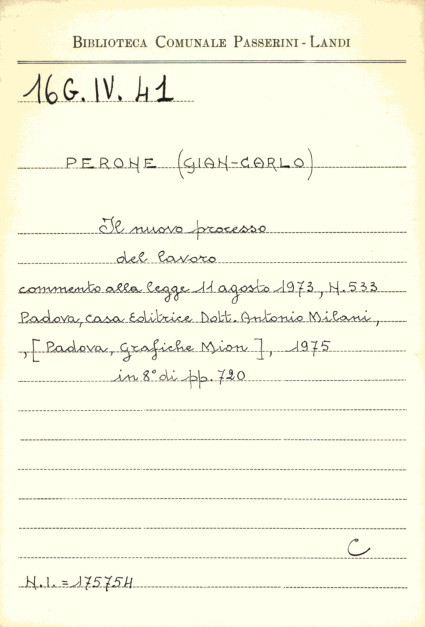 BIBLIOTECA COMUNALE PASSERINI - LANDI
16 G. IV. 41
PERONE (GIAN-CARLO)
Il nuovo processo
del lavoro
commento alla legge 11 agosto 1973, N. 533
Padova, Casa Editrice Dott. Antonio Milani,
, [Padova, Grafiche Mion], 1975
in 8° di pp. 720
C
N.I. = 175754